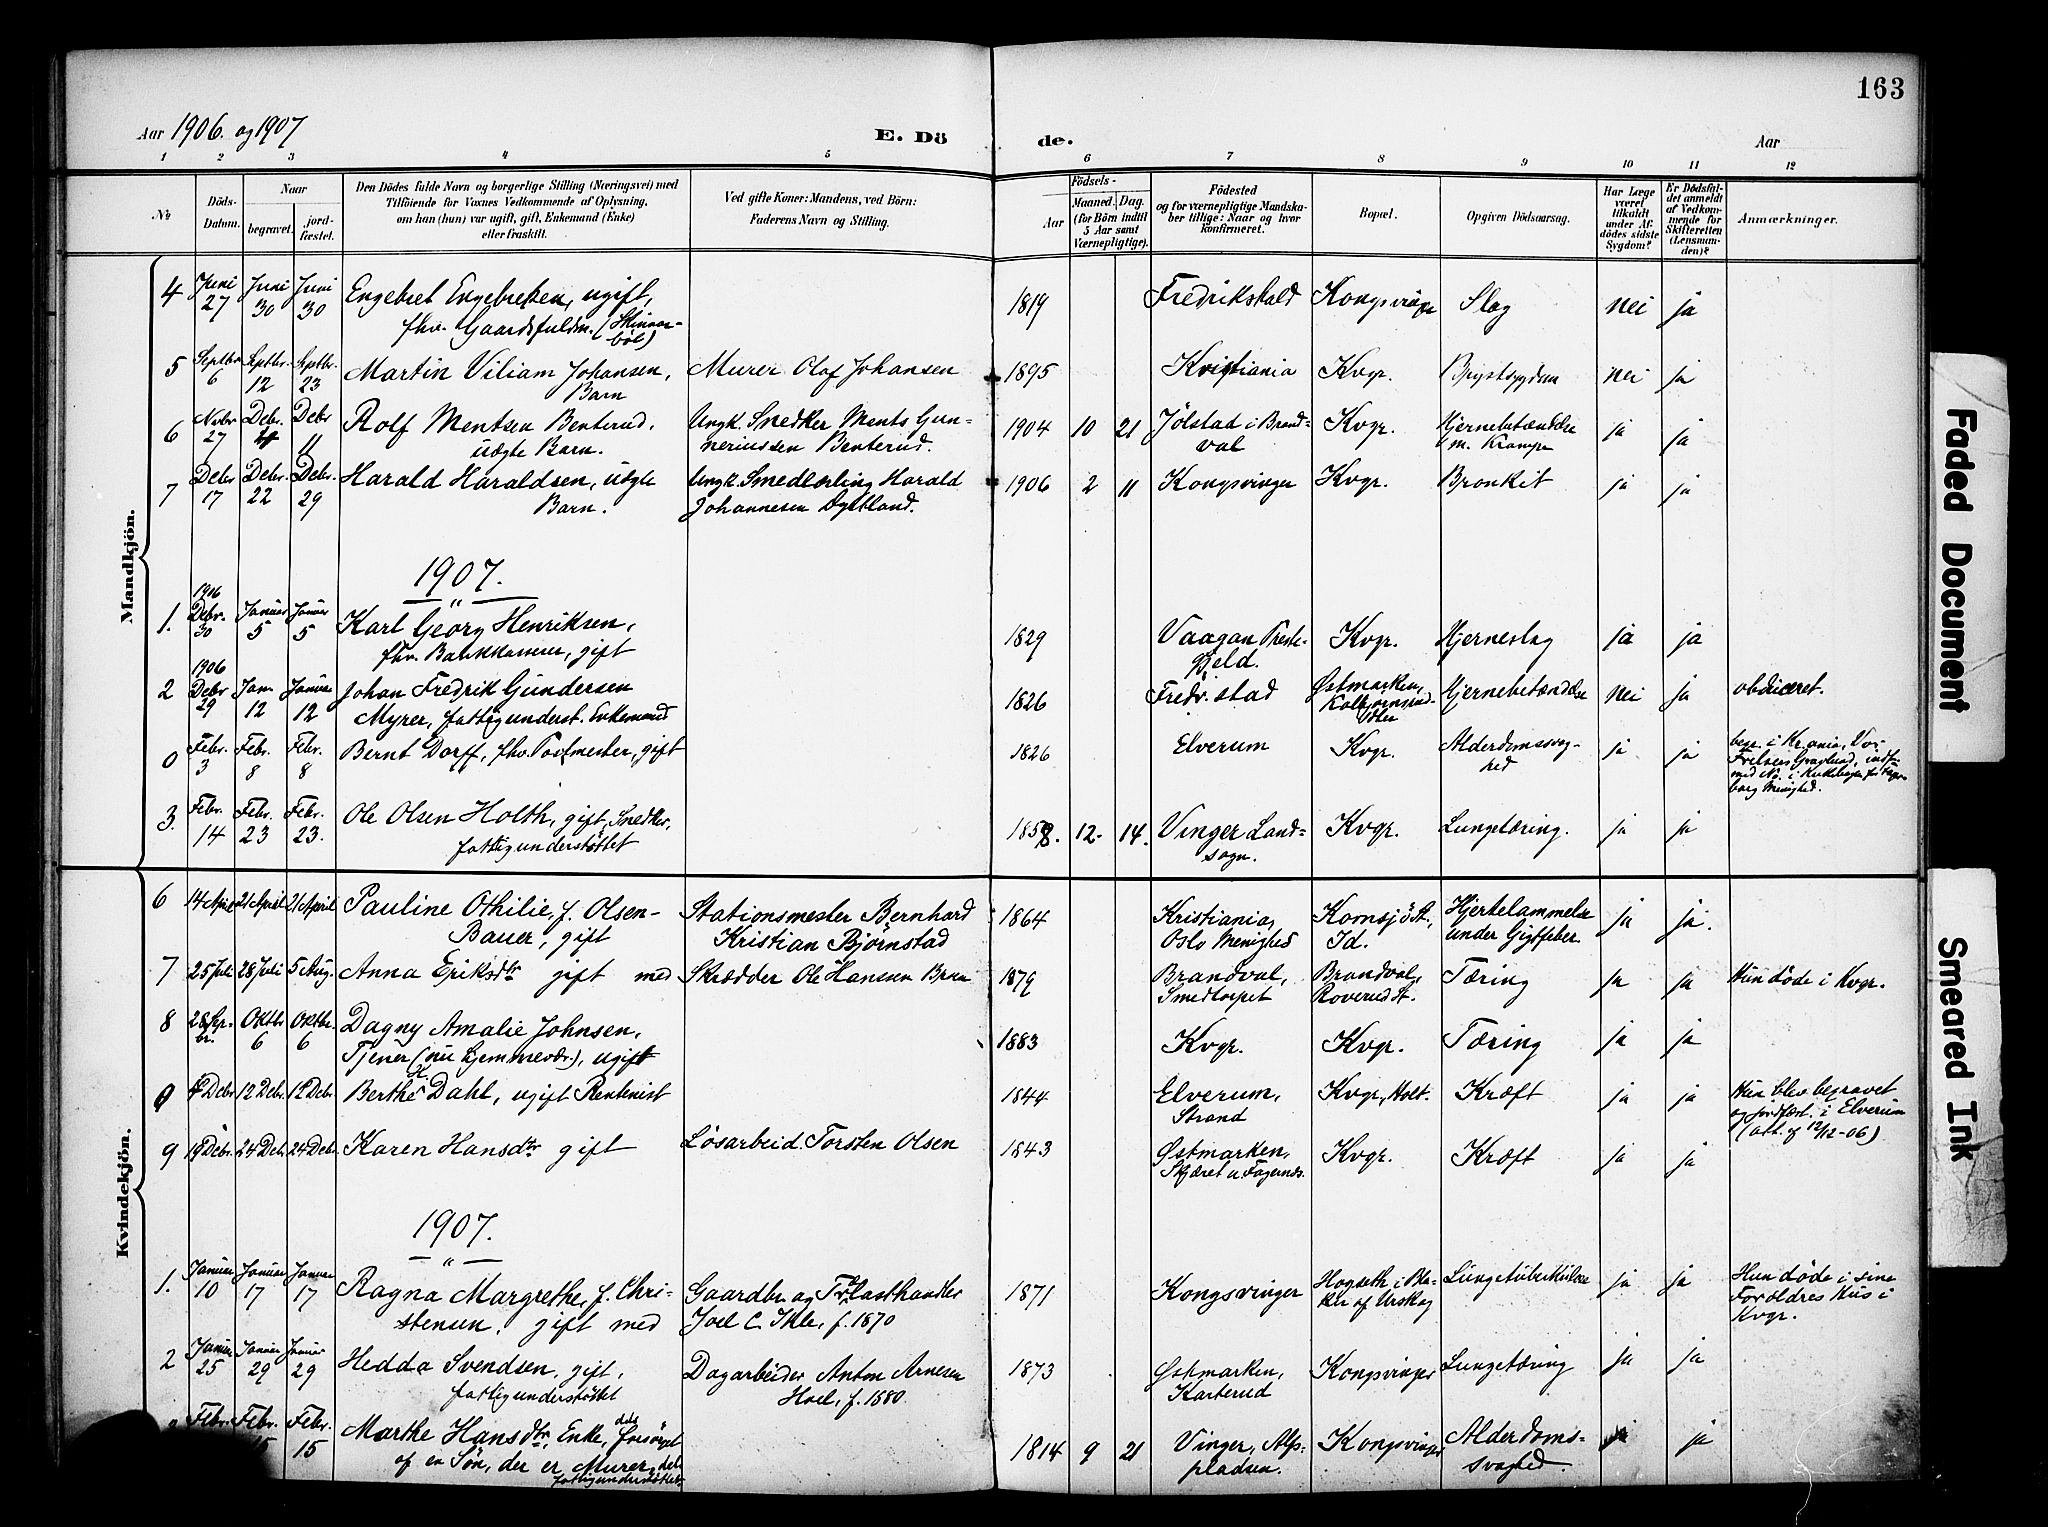 163
Aar 1906. og 1907
E. Dö de.
Aar
1 2 3 4 5 6 7 8 9 10 11 12
№
Döds-Datum.
Naar
begravet.
jord-fæstet.
Den Dödes fulde Navn og borgerlige Stilling (Næringsvei) med
Tilföiende for Voxnes Vedkommende af Oplysning,
om han (hun) var ugift, gift, Enkemand (Enke)
eller fraskilt.
Ved gifte Koner: Mandens, ved Börn:
Faderens Navn og Stilling.
Födsels-
Aar
Maaned. Dag.
(for Börn indtil
5 Aar samt
Værnepligtige).
Födested
og for værnepligtige Mandska-
ber tillige: Naar og hvor
konfirmeret.
Bopæl.
Opgiven Dödsaarsag.
Har Læge
været
tilkaldt
under Af-
dödes sidste
Sygdom?
Er Dödsfal-
det anmeldt
af Vedkom-
mende for
Skifteretten
(Lensman-
den)?
Anmærkninger.
Mandkjön.
4 Juni 27 Juni 30 Juni 30 Engebret Engebretsen, ugift, 1819 Fredrikshald Kongsvinger Slag nei ja
fhv. Gaardsfuldm. (Skinnar-
böl)
5 Septbr 6 Septbr. 12 Septbr. 23 Martin Viliam Johansen, Murer Olaf Johansen 1895 Kristiania Kvgr. Brystsygdom nei ja
Barn
6 Novbr 27 Debr. 4 Debr 11 Rolf Mentsen Benterud, Ungk. Snedker Ments Gun- 1904 10 21 Jølstad i Brand- Kvgr. Hjernebetændelse ja ja
uægte Barn. neriussen Benterud. val m. Krampe
7 Debr 17 Debr. 22 Debr. 29 Harald Haraldsen, uægte Ungk. Smedlærling Harald 1906 2 11 Kongsvinger Kvgr. Bronkit ja ja
Barn. Johannesen Dystland.
1907.
1. 1906 Debr. 30 Januar 5 Januar 5 Karl Georg Henriksen, 1829 Vaagan Præste- Kvgr. Hjerneslag ja ja
fhv. Bankkasserer, gift gjeld.
2 1906 Debr 29 Jan. 12 Januar 12 Johan Fredrik Gundersen 1826 Fredr. stad Østmarken, Hjernebetændelse nei ja obduceret.
Myrer, fattigunderst. Enkemand
0 Febr. 3 Febr. 8 Febr. 8 Bernt Dorff, fhv. Postmester, gift 1826 Elverum Kvgr. Alderdomssvag- ja ja begr. i Kr.ania, Vor
hed Frelsers Gravlund, indf.
med No. i Kirkebogen for
borg Menighed.
3. Febr. 14 Febr. 23 Febr. 23. Ole Olsen Holth, gift, Snedker, 1858. 12. 14. Vinger Land- Kvgr. Lungetæring. ja ja
fattigunderstöttet sogn.
Kvindekjön.
6 14 April 21 April 21 April Pauline Othilie, f. Olsen- Stationsmester Bernhard 1864 Kristiania, Kornsjö St., Hjertelammelse ja ja.
Bauer, gift Kristian Björnstad Oslo Menighed Id. under Gigtfeber.
7 25 Juli 28 Juli 5 Aug. Anna Eriksdtr gift med Skrædder Ole Hansen Brun 1879 Brandval, Brandval, Tæring ja ja Hun døde i Kvgr.
Smedtorpet Roverud St.
8 28 Sep-br. Oktbr 6 Oktbr. 6 Dagny Amalie Johnsen, 1883 Kvgr. Kvgr. Tæring ja ja
Tjener (nu hjemmevær.), ugift
0 4 Debr 12 Debr. 12 Debr. Berthe K. Dahl, ugift Rentenist 1844 Elverum, Kvgr., Holt. Kræft ja ja Hun blev begravet
Strand og jordfæst. i Elverum
(att. af 12/12-06)
9 19 Debr. 24 Debr. 24 Debr. Karen Hansdtr gift Løsarbeid. Torsten Olsen 1843 Østmarken, Kvgr. Kræft ja ja
Skjæret u. Fagernes.
1907.
1. Januar 10 Januar 17 Januar 17 Ragna Margrethe, f. Chri- Gaardbr. og Trælasthandler 1871 Kongsvinger Hogseth i Bla- Lungetuberkulose ja ja Hun døde i sine
stensen, gift med Joel C. Ihle, f. 1870 ker af Urskog Forældres Hus i
Kvgr.
2 Januar 25 Januar 29 Januar 29 Hedda Svendsen, gift, Dagarbeider Anton Arnesen 1873 Østmarken, Kongsvinger Lungetæring ja ja
fattigunderstöttet Hoel, f. 1880. Karterud
Febr. Febr. 15 Febr. 15 Marthe Hansdtr, Enke, dels forsörget 1814 9 21 Vinger, Alf- Kongsvinger Alderdoms- ja ja
af en Søn, der er Murer, dels pladsen. svaghed.
fattigunderstöttet.
Faded Document
Smeared Ink